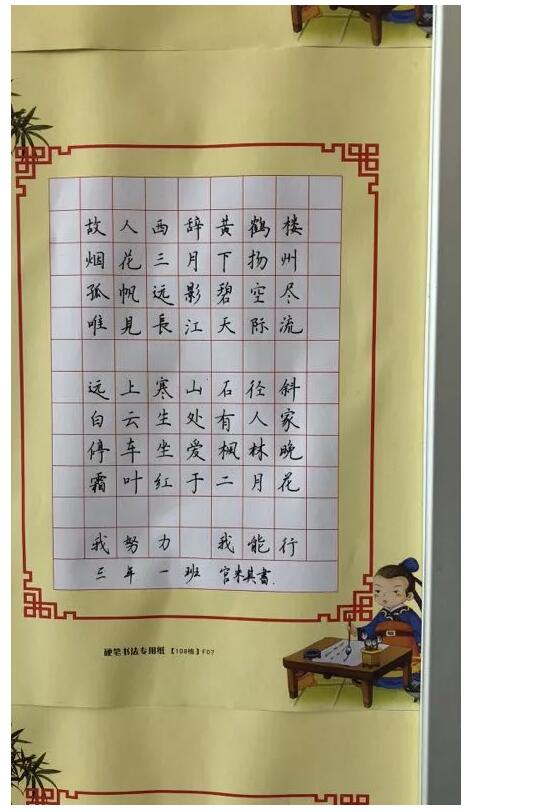 故人西辞黄鹤楼
烟花三月下扬州
孤帆远影碧空尽
唯見長江天际流
远上寒山石径斜
白云生处有人家
停车坐爱枫林晚
霜叶红于二月花
我努力 我能行
三年一班 官米其書
硬笔书法专用纸【108格】F07